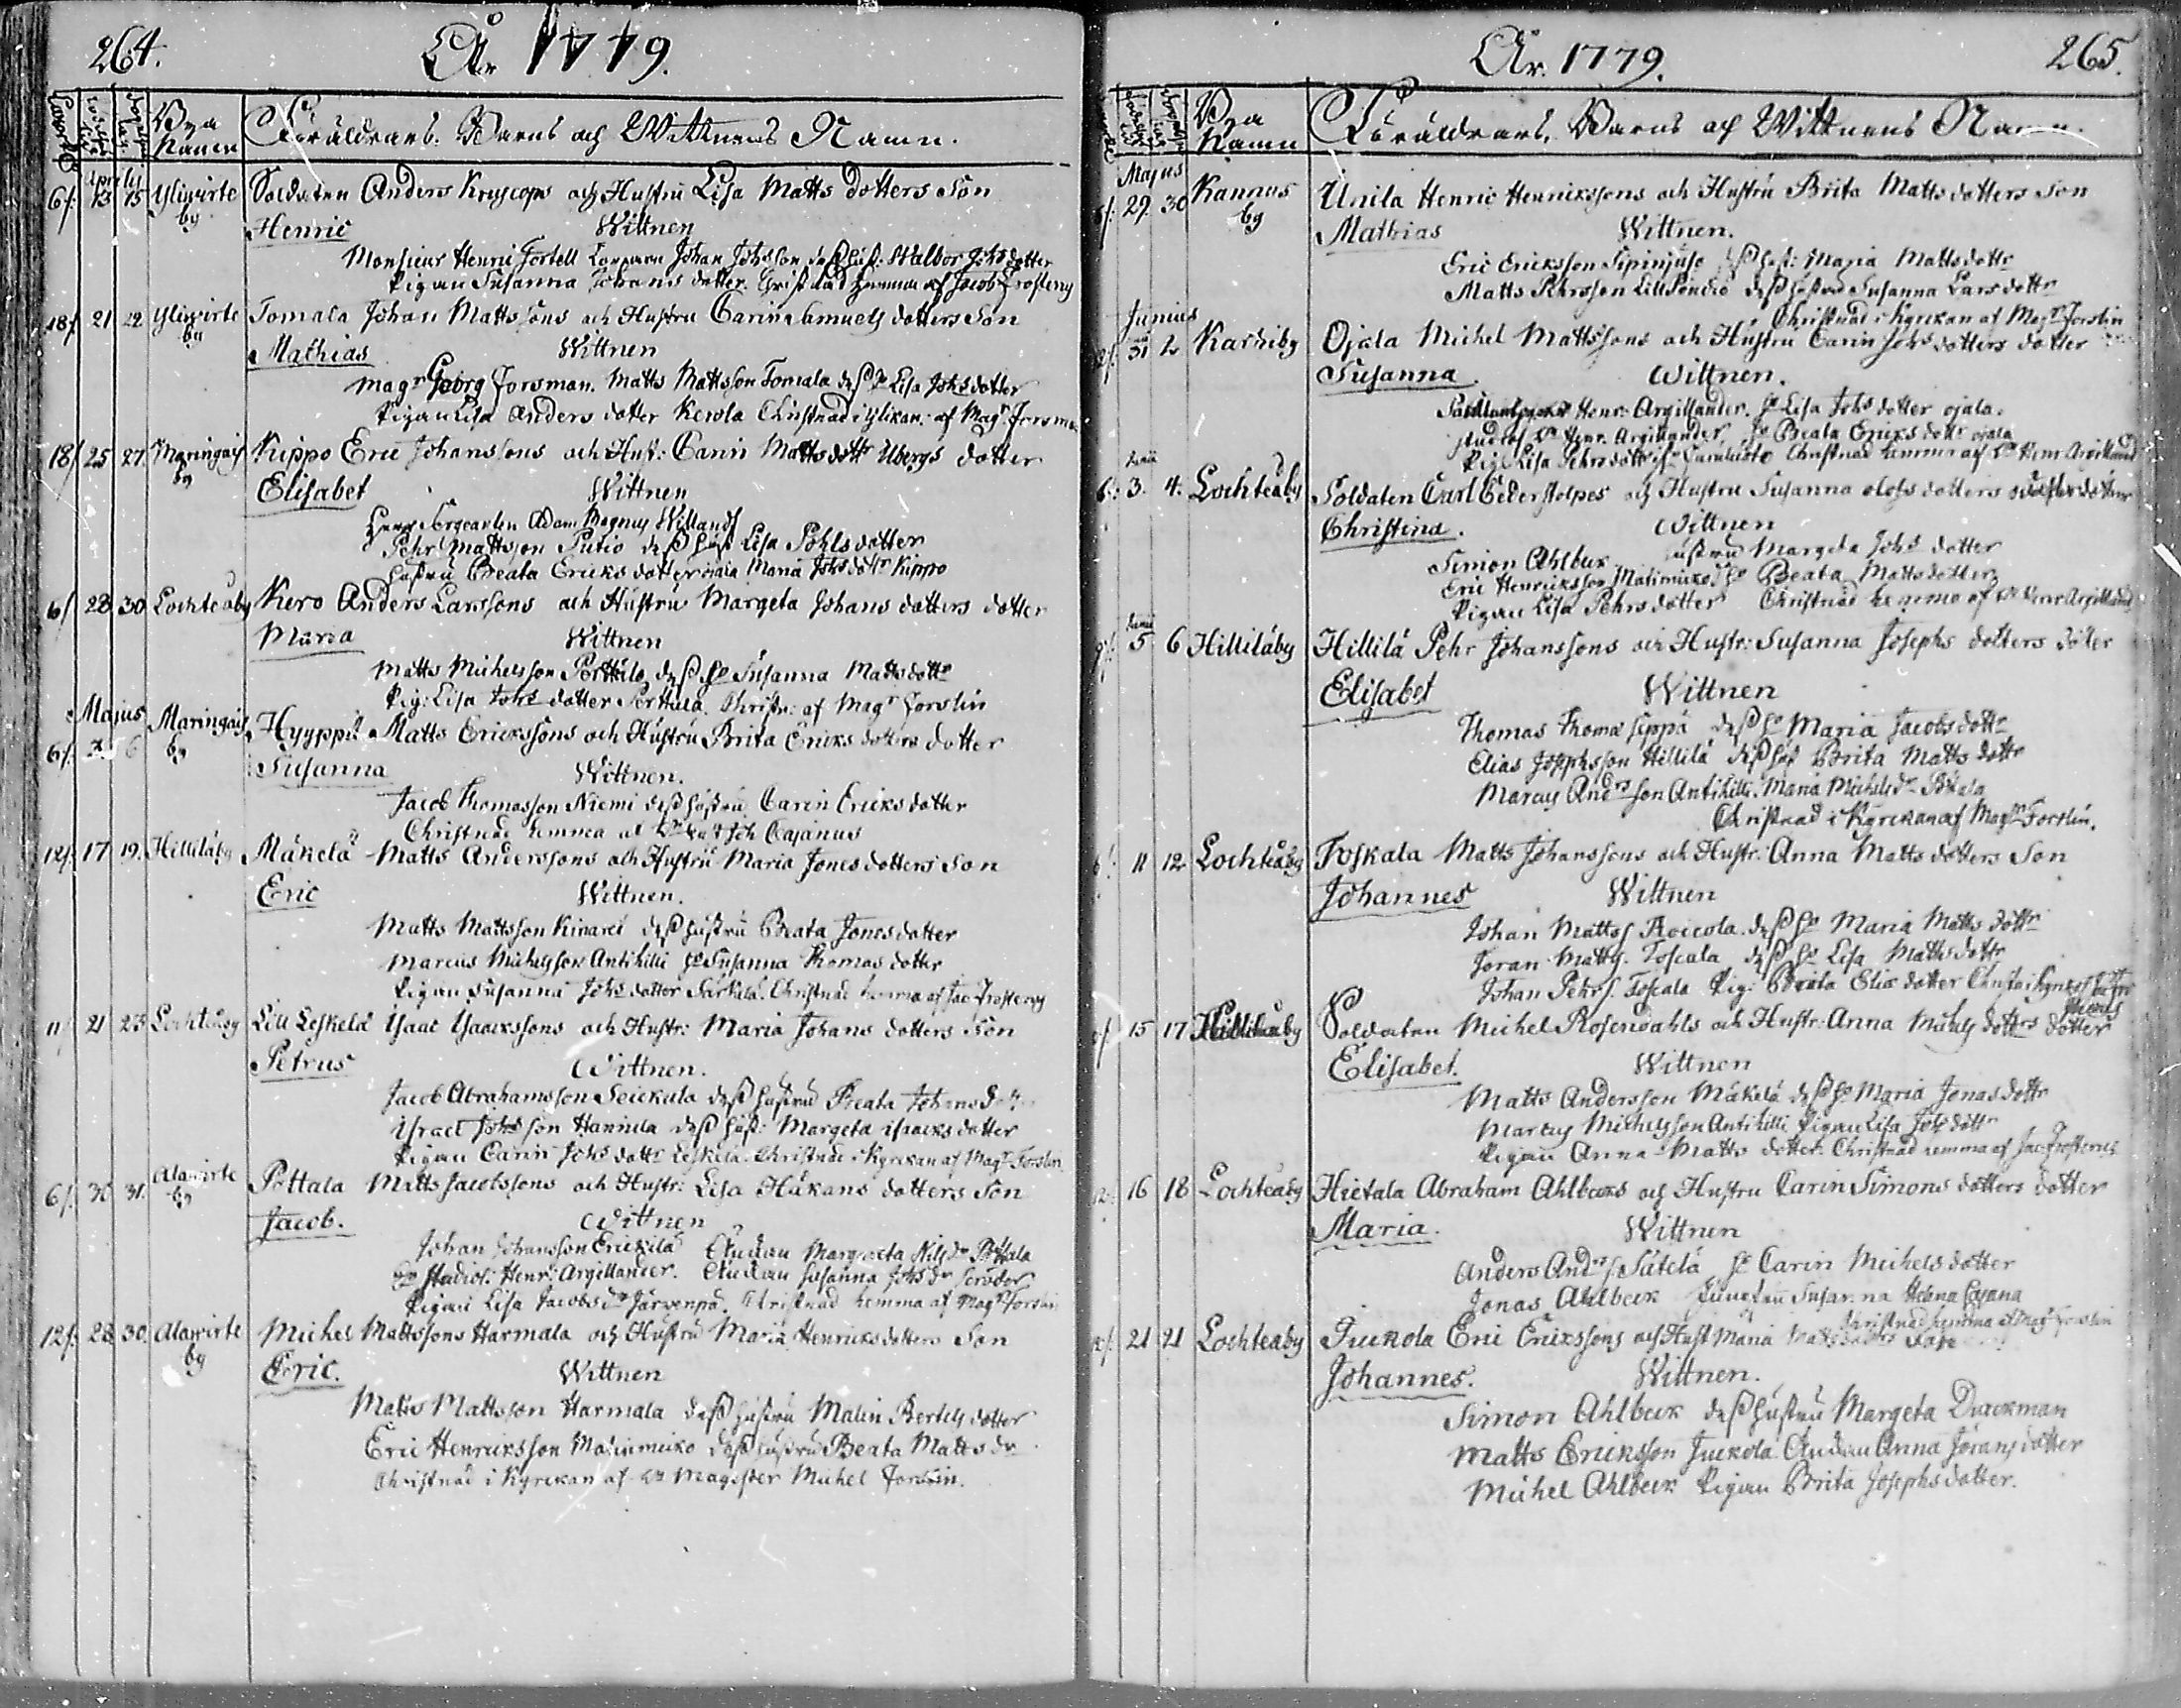 264.
År 1779.
Bya Namn
Föräldrars, Barns och Wittnens Namn.
Aprilis
6/. 13 15 Yliwirte Soldaten Anders Kryscops och Hustru Lisa Matts dotters Son
by Henric Wittnen
Monsieur Henric Johan Johsson Johs dotter
Pigan Susanna Johans dotter. Christnad hemma af Jacob Frosterus
18/ 21 22 Yliwirte Tomala Johan Mattssons och Hustru Carin Samuels dotters Son
by Mathias Wittnen
Magr Georg Forsman. Matts Mattsson Tomala deß Hu Lisa Johs dotter
Pigan Lisa Anders dotter Kerola Christnad i af Magr
18/ 25 27. Maringais Kippo Eric Johanssons och Hust: Carin Matts dottr Ubergs dotter
by Elisabet Wittnen
Sergeanten Adam Magnus Willands
Pehr Mattsson Putio deß hust Lisa Pohls dotter
hustru Beata Ericks dotter ojala Maria Johs dottr Kippo
6/ 28 30 Lochteåby Kero Anders Larssons och Hustru Margeta Johans dotters dotter
Maria Wittnen
Matts Michelsson Perttula deß Hu Susanna Matts dottr
Pig: Lisa Johs dotter Perttula. Christn: af Magr Forslin
Majus
6/. 6 Maringais Hyyppä Matts Erickssons och Hustru Brita Ericks dotters dotter
by Susanna Wittnen.
Jacob Thomasson Niemi deß hustru Carin Ericks dotter
Christnad hemma af Joh Cajanus
12/. 17 19. Hilliläby Mäkelä Matts Anderssons och Hustru Maria Jones dotters Son
Eric Wittnen.
Matts Mattsson Kinarei deß hustru Beata Jones dotter
Marcus Michelsson Antihilli Hu Susanna Thomas dotter
Pigan Susanna Johs dotter Särkelä. Christnad hemma af Jac Frosterus
11/ 21 23 Lochteåby Lill Leskelä Isaac Isaackssons och Hustr: Maria Johans dotters Son
Petrus Wittnen.
Jacob Abrahamsson Seickula deß hustru Beata Johans
Israel Johsson Hannila deß hust: Margeta Isaacks dotter
Pigan Carin Johs dottr Leskelä. Christnad i Kyrckan af Magr Forslin
6/. 30 31. Alawirte Pottala Matts Jacobssons och Hustr: Lisa Håkans dotters Son
by Jacob. Wittnen
Johan Johansson Erickilä Enckan Margareta Nils dr Pottala
Studios: Henr: Argillander. Enckan Susanna Johs dr
Pigan Lisa Jacobs dr Järvenpä. Christnad hemma af Magr Forslin
12/. 28 30. Alawirte Michel Mattssons Harmala och Hustru Maria Henricks dotters Son
by Eric. Wittnen
Matts Mattsson Harmala deß hustru Malin Bertels dotter
Eric Henricksson Matinmicko deß hustru Beata Matts dr
Christnad i Kyrckan af Hr Magister Michel Forslin.
År. 1779.
265.
Bya Namn
Föräldrars, Barns och Wittnens Namn.
Majus
29. 30 Kannus Unila Henric Henrickssons och Hustru Brita Matts dotters Son
by Mathias Wittnen.
Eric Ericksson deß hust: Maria Matts dottr
Matts Pehrsson deß hustru Susanna Lars dottr
Christnad i Kyrckan af Magr Forslin
Junius
31 2 Karhiby Ojala Michel Mattssons och Hustru Carin Johs dotters dotter
Susanna. Wittnen.
Henr: Argillander. Hu Lisa Johs dotter ojala.
Studios Hr Henr. Argillander Hu Beata Ericks dottr ojala
Pig Lisa Pehrs dottr Christnad hemma af Hr Henr Argilland
Junii
6: 3. 4. Lochteåby Soldaten Carl Cederstolpes och Hustru Susanna olofs dotters dotter
Christina. Wittnen
Simon Ahlbeck hustru Margeta Johs dotter
Eric Henricksson Matinmicko Hu Beata Matts dotter
Pigan Lisa Pehrs dotter Christnad hemma af Hr Henr Argilland
Junii
5 6 Hilliläby Hillilä Pehr Johanssons och Hustr: Susanna Josephs dotters doter
Elisabet Wittnen
Thomas Thomæ Seppä deß Hu Maria Jacobs dottr
Elias Josephsson Hillilä deß hust Brita Matts dottr
Marcus Andrsson Antihilli. Maria Michels dr
Christnad i Kyrckan af Magr Forslin.
6/. 11 12 Lochteåby Toskala Matts Johanssons och Hustr: Anna Matts dotters Son
Johannes Wittnen
Johan Matts S Roicola. deß Hu Maria Matts dottr
Joran Matts S. Toscala deß Hu Lisa Matts dottr
Johan Pehrs S. Toscala Pig: Brita Eliæ dotter
15 17 Hilliläby Soldaten Michel Rosendahls och Hustr: Anna Michels dotters dotter
Elisabet. Wittnen
Matts Andersson Mäkelä deß Hu Maria Jonas dottr
Marcus Michelsson Antihilli Pigan Lisa Johs dottr
Pigan Anna Matts dotter. Christnad hemma af Jac Frosterus
12. 16 18 Lochteåby Hietala Abraham Ahlbecks och Hustru Carin Simons dotters dotter
Maria. Wittnen
Anders Andrs S. Sätelä Hu Carin Michels dotter
Jonas Ahlbeck Susanna Helena Cajana
Christnad hemma af Magr Forslin
21 21 Lochteåby Juckola Eric Erickssons och Hust Maria Matts dotters Son
Johannes. Wittnen.
Simon Ahlbeck deß hustru Margeta Drackman
Matts Ericksson Juckola Enckan Anna Jörans dotter
Michel Ahlbeck Pigan Brita Josephs dotter.